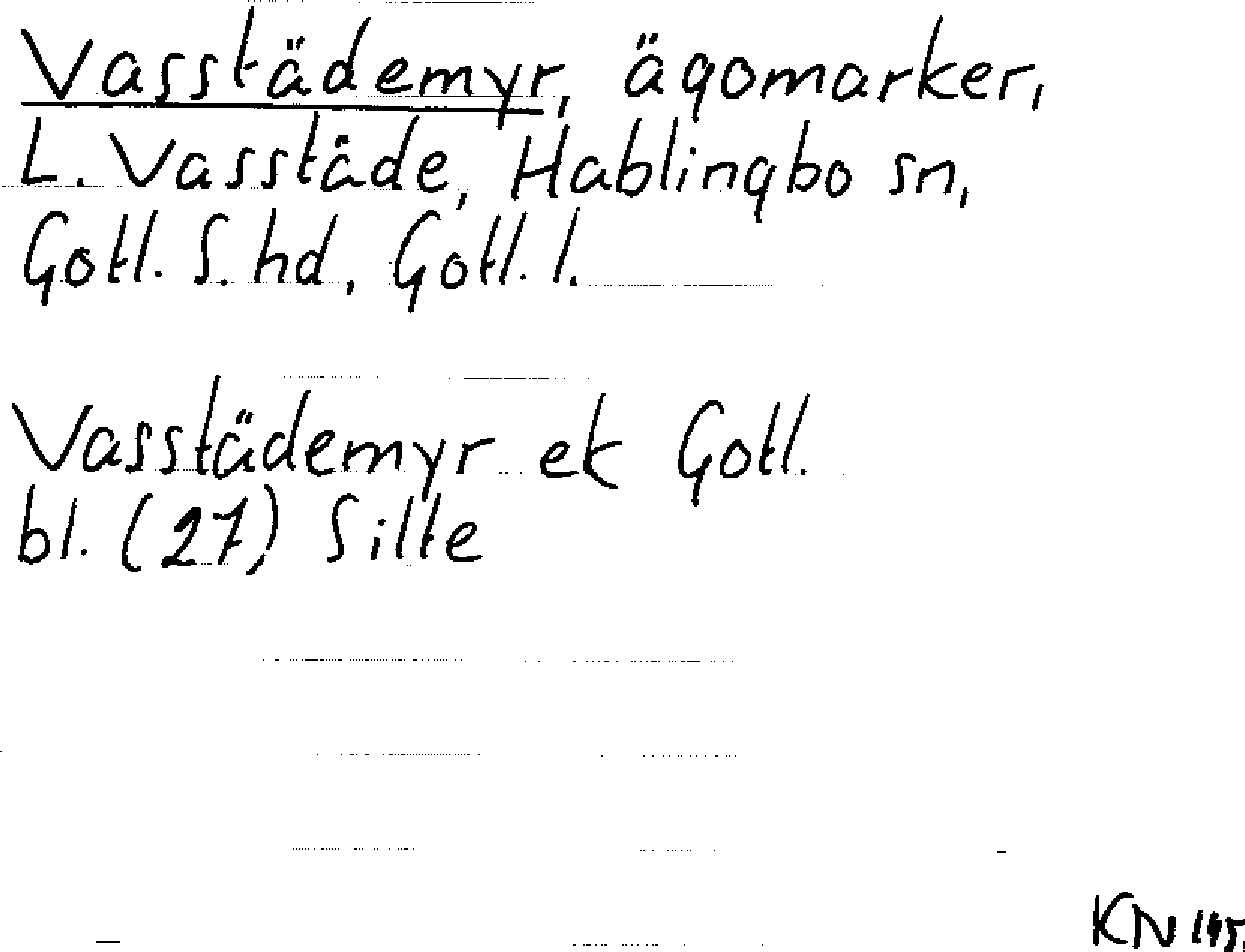 Vasstädemyr, ägomarker,
L. Vasstäde, Hablingbo sn,
Gotl. S. hd, Gotl. l.
Vasstädemyr ek Gotl.
bl. (27) Silte
KN